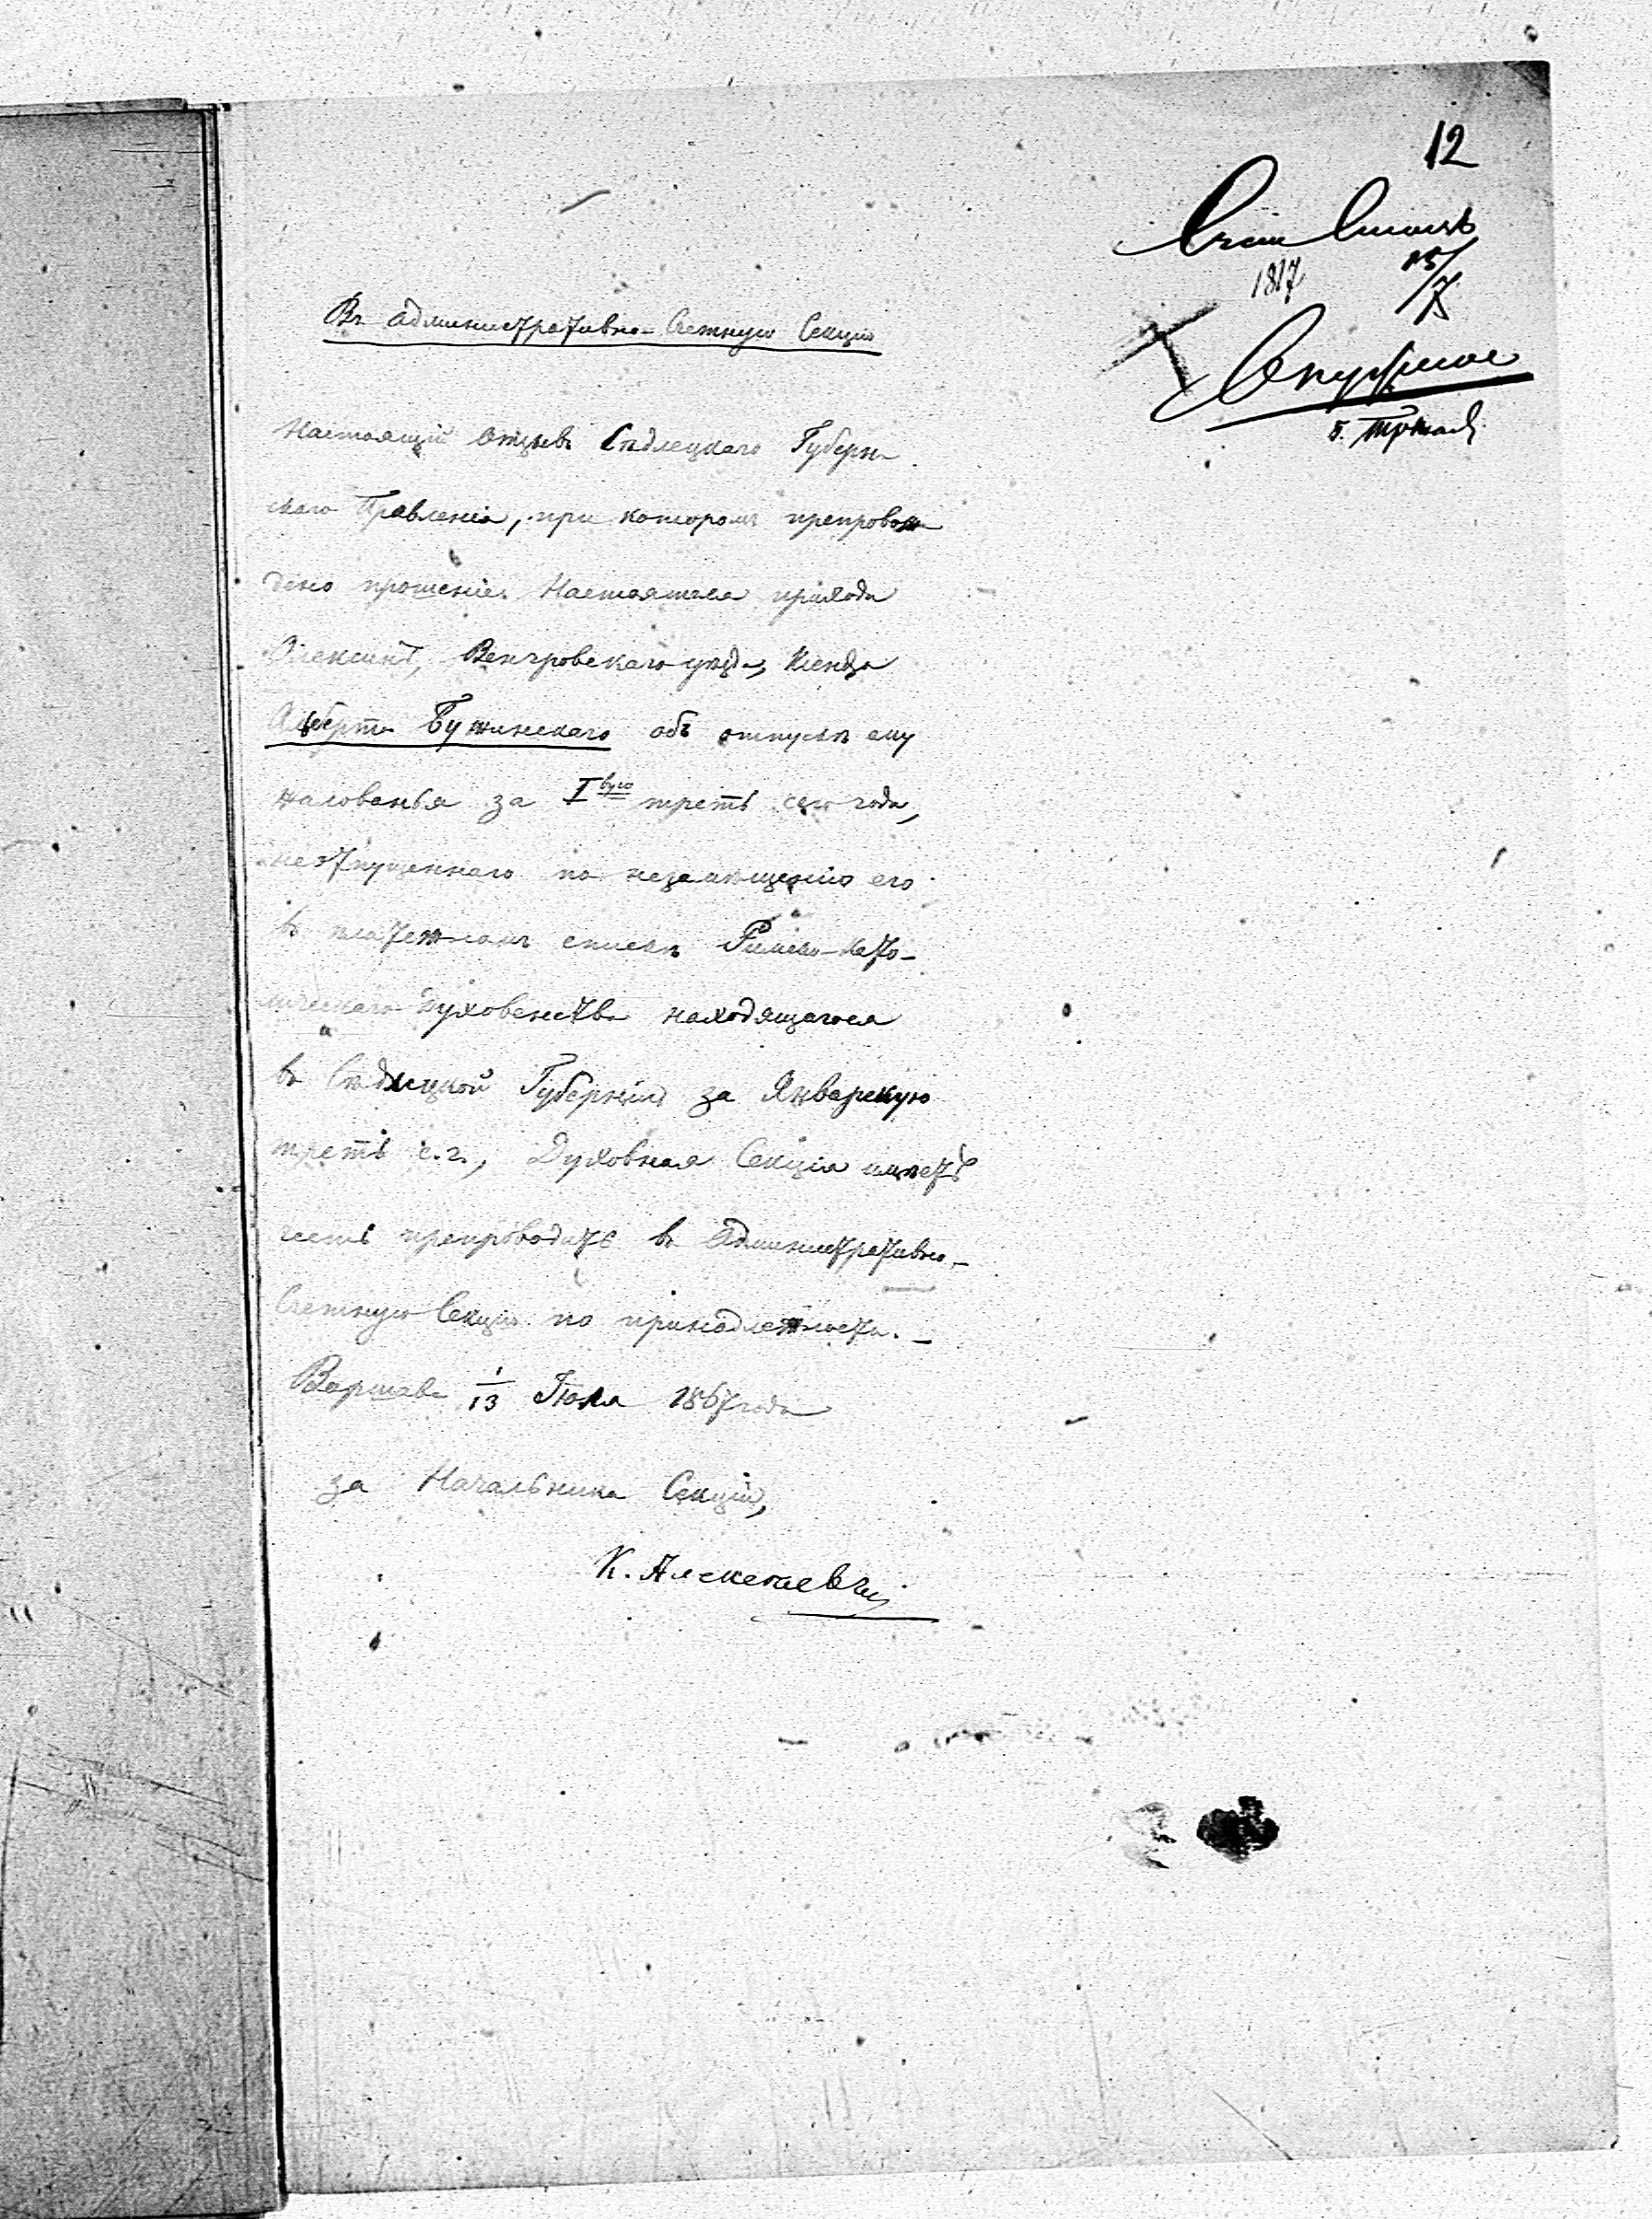 12
15/7
1817
Въ Административно-Счетную Секцію
Настоящій отзывъ Сѣдлецкаго Губерн-
скаго Правленія, при которомъ препровож-
дено прошеніе Настоятеля прихода
Олексинъ, Венгровскаго уѣзда, Ксендза
Альберта Бужинскаго объ отпускѣ ему
жалованья за Iвую треть сего года,
неотпущеннаго по незамѣщенію его
въ платежномъ спискѣ Римско-Като-
лическаго Духовенства находящагося
въ Сѣдлецкой Губерніи за Январскую
треть с.г., Духовная Секція имѣетъ
честь препроводить въ Административно-
Счетную Секцію по принадлежности.-
Варшава 1/13 Іюля 1867 года
за Начальника Секціи,